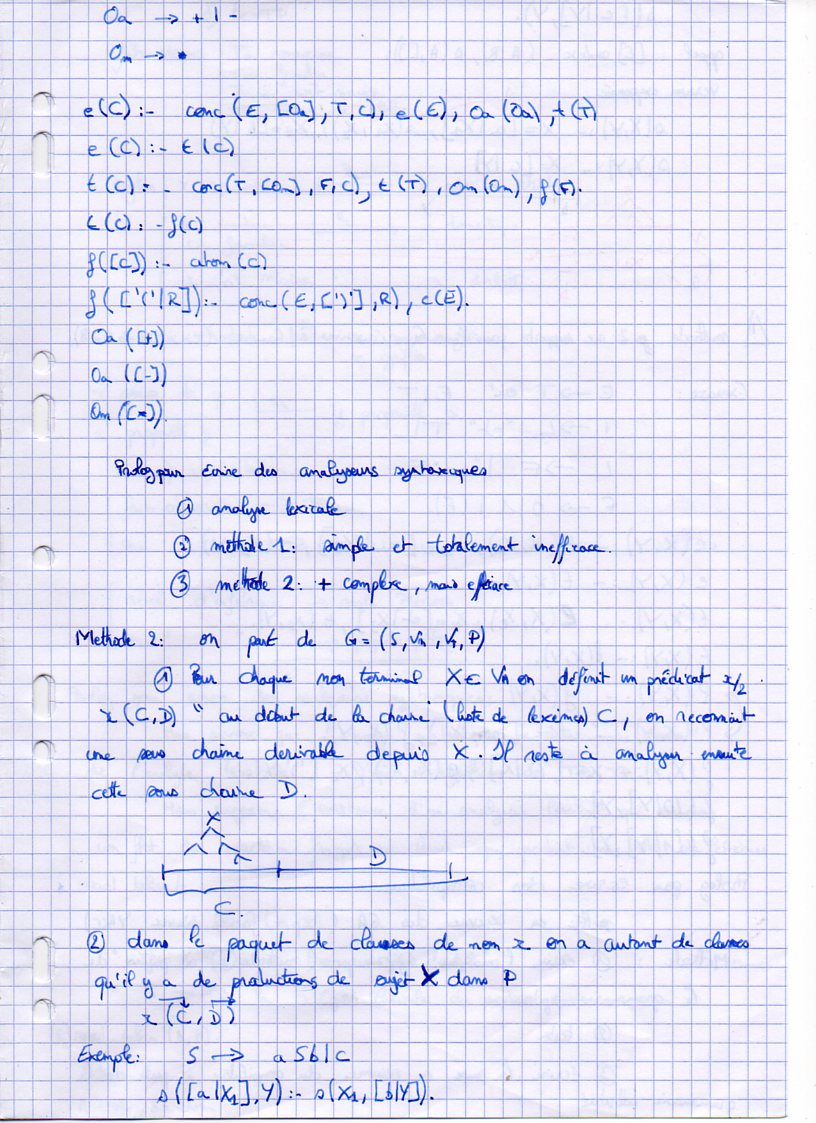 Oa → + | -
Om → *
e(C) :- conc(E, [Oa], T, C), e(E), Oa(Oa), t(T)
e(C) :- t(C)
t(C) :- conc(T, [Om], F, C), t(T), Om(Om), f(F).
t(C) :- f(C)
f([C]) :- atom(C)
f(['('|R]) :- conc(E, [')'], R), e(E).
Oa([+])
Oa([-])
Om([*]).
Prolog pour écrire des analyseurs syntaxiques
① analyse lexicale
② méthode 1: simple et totalement inefficace.
③ méthode 2: + complexe, mais efficace
Methode 2: on part de G = (S, Vn, Vt, P)
① Pour chaque non terminal X ∈ Vn on définit un prédicat x/2.
x(C,D) " au début de la chaine (liste de lexèmes) C, on reconnait
une sous chaine derivable depuis X. Il reste à analyser ensuite
cette sous chaine D.
X
D
C.
② dans le paquet de clauses de nom x on a autant de clauses
qu'il y a de productions de sujet X dans P
x(C,D)
Exemple: S → aSb|c
s([a|X1],Y) :- s(X1, [b|Y]).